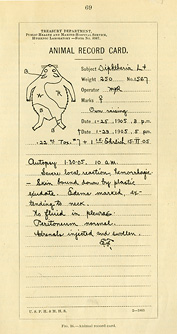 69
TREASURY DEPARTMENT,
PUBLIC HEALTH AND MARINE-HOSPITAL SERVICE,
HYGIENIC LABORATORY
ANIMAL RECORD CARD.
Subject Diphtheria L+
Weight 250 No. 1567
Operator
Marks
Own raising
Date 1-25, 1905, 3 p.m.
Date 1-29, 1905, 5 pm
.22 Tox. #7 + 1
Autopsy 1-30-05. 10 a.m.
Severe local reaction, hemorrhagic
- Skin bound down by plastic
exudate. Edema marked, ex-
tending to neck.
No fluid in pleurae.
Peritoneum normal.
Adrenals injected and swollen.
U. S. P. H. & M. H. S.
Animal record card.